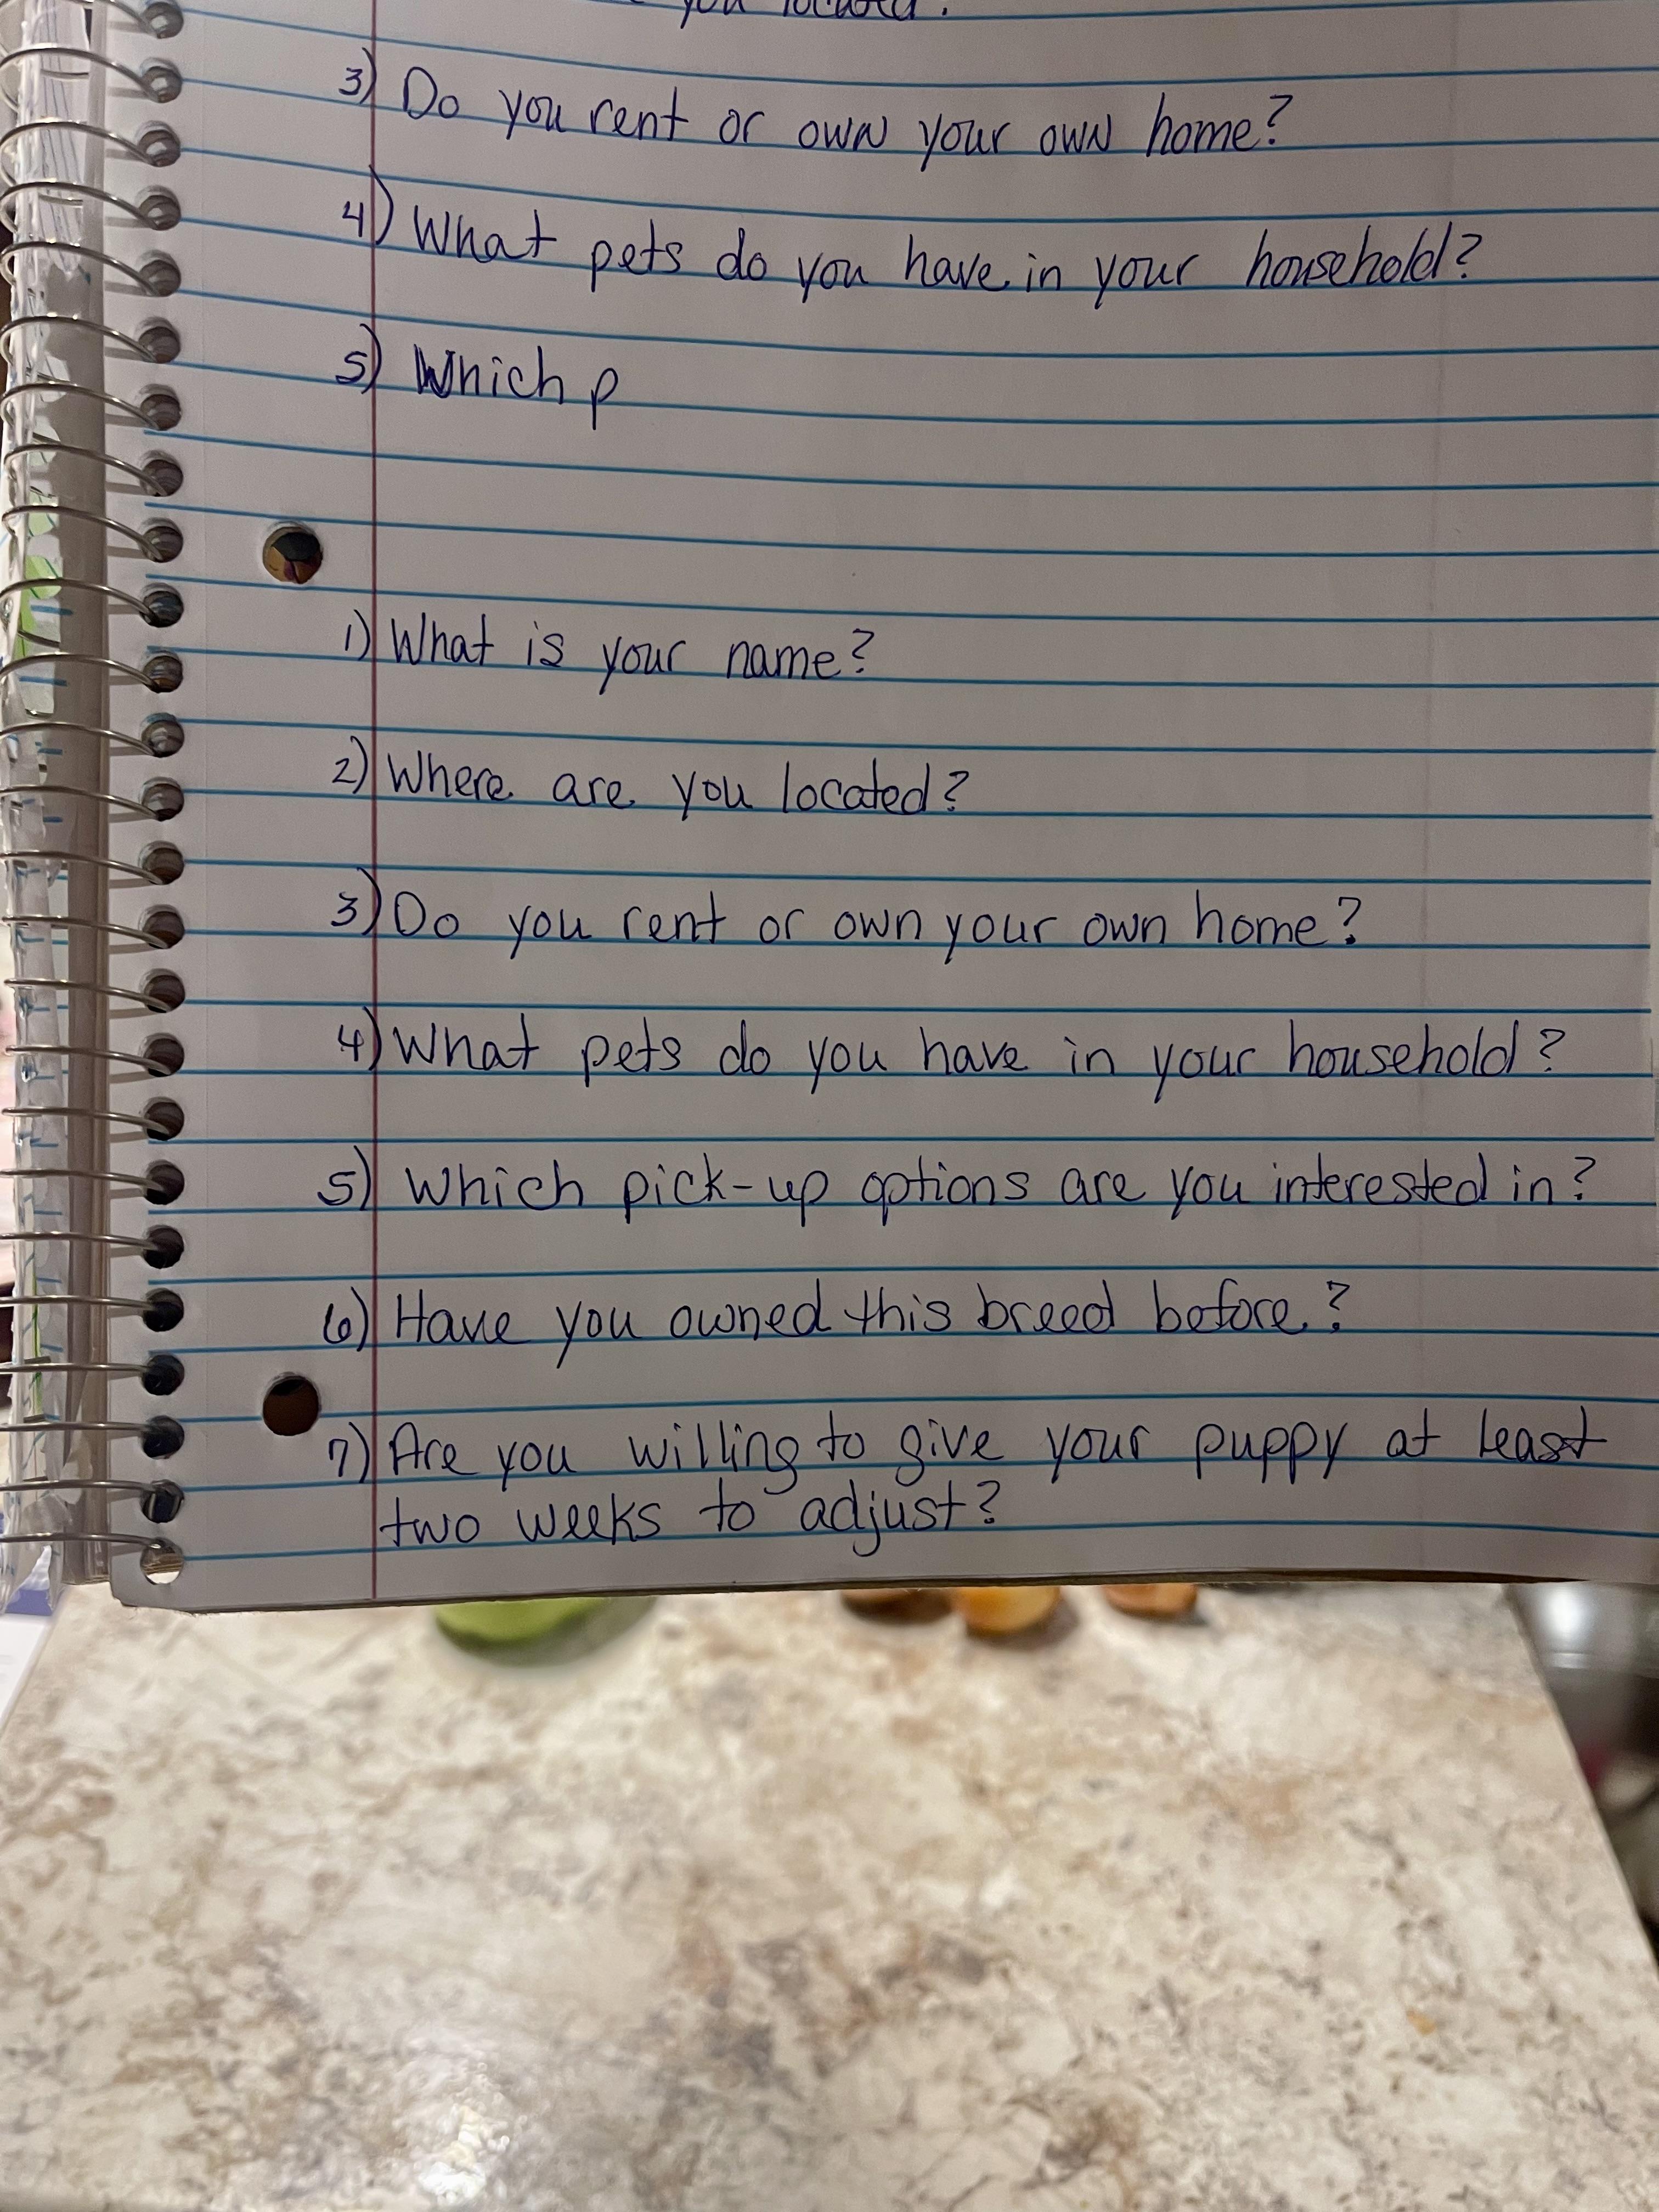 you located?
3) Do you rent or own your own home?
4) What pets do you have in your household?
5) Which p
1) What is your name?
2) Where are you located?
3) Do you rent or own your own home?
4) What pets do you have in your household?
5) Which pick-up options are you interested in?
6) Have you owned this breed before?
7) Are you willing to give your puppy at least
two weeks to adjust?